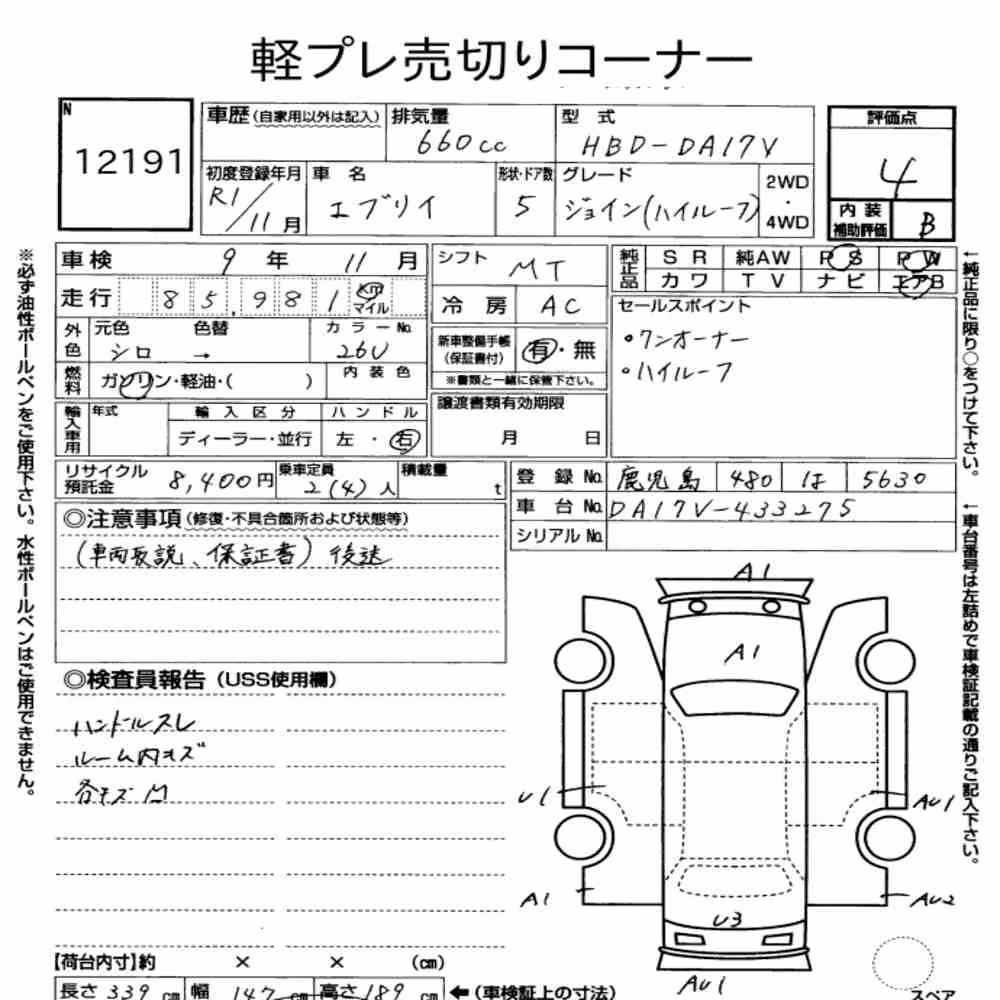 軽プレ売切りコーナー
N
12191
車歴 (自家用以外は記入)
排気量
660cc
型式
HBD-DA17V
評価点
4
初度登録年月
R1/11月
車名
エブリイ
形状・ドア数
5
グレード
ジョイン(ハイルーフ)
2WD
・
4WD
内装
補助評価
B
車検 9年 11月
シフト MT
純正品
SR 純AW PS PW
カワ TV ナビ エアB
走行 85,981 km
マイル
冷房 AC
セールスポイント
・ワンオーナー
・ハイルーフ
外色
元色 色替 カラーNo.
シロ → 26U
新車整備手帳
(保証書付)
有・無
※書類と一緒に保管下さい。
燃料
ガソリン・軽油・( )
内装色
輸入車用
年式 輸入区分 ハンドル
ディーラー・並行 左・右
譲渡書類有効期限
月 日
リサイクル
預託金
8,400円
乗車定員
2(4)人
積載量
t
登録No. 鹿児島 480 は 5630
車台No. DA17V-433275
シリアルNo.
◎注意事項 (修復・不具合箇所および状態等)
(車両取説、保証書)後送
◎検査員報告 (USS使用欄)
ハンドルスレ
ルーム内キズ
各キズ凹
A1
A1
U1
AU1
A1
AU2
U3
AU1
【荷台内寸】約 × × (cm)
長さ 339 cm 幅 147 cm 高さ 189 cm ←(車検証上の寸法)
スペア
※必ず油性ボールペンをご使用下さい。水性ボールペンはご使用できません。
←純正品に限り○をつけて下さい。
←車台番号は左詰めで車検証記載の通りご記入下さい。